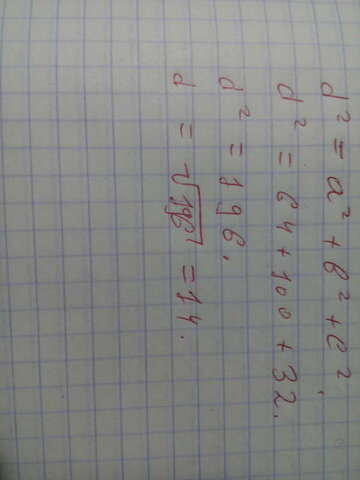 d² = a² + b² + c².
d² = 64 + 100 + 32.
d² = 196.
d = √196 = 14.